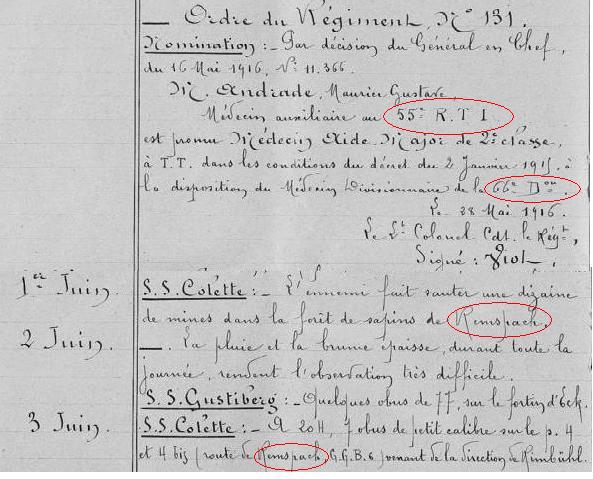 — Ordre du Régiment, N° 131.
Nomination : - Par décision du Général en Chef,
du 16 Mai 1916, N° 11.366.
M. Andrade, Maurice Gustave,
Médecin auxiliaire au 55e R. T. I.
est promu Médecin Aide Major de 2e classe,
à T.T. dans les conditions du décret du 2 Janvier 1915, à
la disposition du Médecin Divisionnaire de la 66e Don.
Le 28 Mai 1916.
Le Lt Colonel Cdt. le Régt,
Signé : Viol.
1er Juin. S.S. Colette : - L'ennemi fait sauter une dizaine
de mines dans la forêt de sapins de Remspach.
2 Juin. —. La pluie et la brume épaisse, durant toute la
journée, rendent l'observation très difficile.
S.S. Gustiberg : - Quelques obus de 77, sur le fortin d'Eck.
3 Juin. S.S. Colette : - A 20H, 7 obus de petit calibre sur le p. 4
et 4 bis (route de Remspach, G.G.B.6) venant de la direction de Rimbühl.